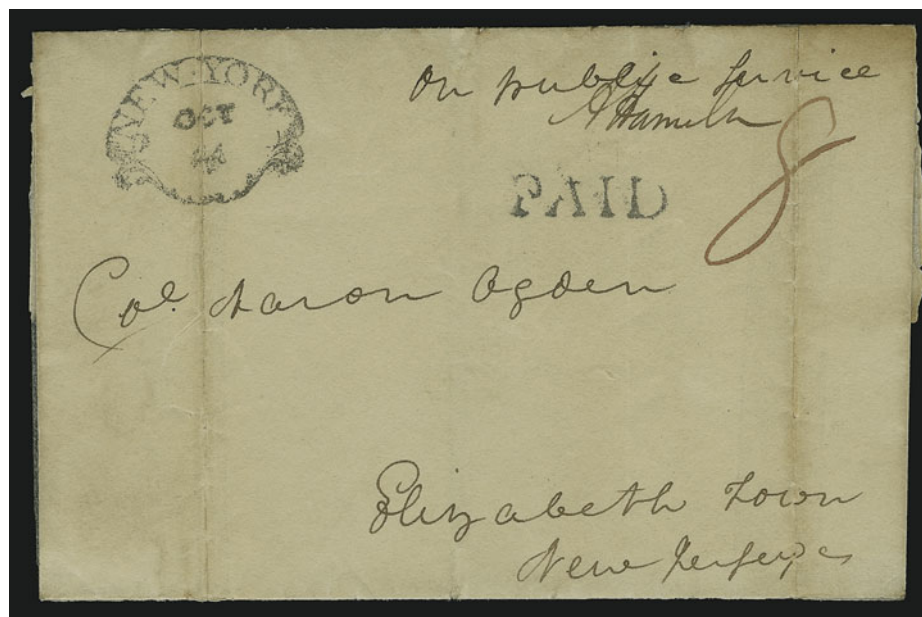 NEW-YORK
OCT
on public Service
A Hamilton
8
PAID
Col. Aaron Ogden
Elizabeth Town
New Jersey